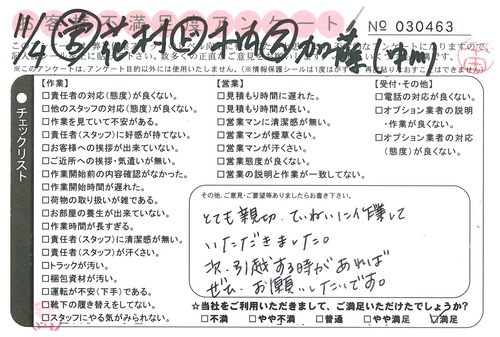 お客様不満足度アンケート
№ 030463
11/4 営 花村 ㊢
加藤 (中川)
※このアンケートは、アンケート目的以外には使用いたしません。(※情報保護シールは1度はがすと、再度貼りなおすことはできません)
チェックリスト
【作業】
□責任者の対応(態度)が良くない。
□他のスタッフの対応(態度)が良くない。
□作業を見ていて不安がある。
□責任者(スタッフ)に好感が持てない。
□お客様への挨拶が出来ていない。
□ご近所への挨拶・気遣いが無い。
□作業開始前の内容確認がなかった。
□作業開始時間が遅れた。
□荷物の取り扱いが雑である。
□お部屋の養生が出来ていない。
□作業時間が長すぎる。
□責任者(スタッフ)に清潔感が無い。
□責任者(スタッフ)が汗くさい。
□トラックが汚い。
□梱包資材が汚い。
□運転が不安(下手)である。
□靴下の履き替えをしてない。
□スタッフにやる気がみられない。
【営業】
□見積もり時間に遅れた。
□見積もり時間が長い。
□営業マンに清潔感が無い。
□営業マンが煙草くさい。
□営業マンが汗くさい。
□営業態度が良くない。
□営業の説明と作業が一致してない。
【受付・その他】
□電話の対応が良くない。
□オプション業者の説明
・作業が良くない。
□オプション業者の対応
(態度)が良くない。
その他、ご意見・ご要望等ありましたらお書き下さい。
とても親切、ていねいに作業して
いただきました。
次、引越する時があれば
ぜひ、お願いしたいです。
☆当社をご利用いただきまして、ご満足いただけたでしょうか?
□不満 □やや不満 □普通 □やや満足 ☑満足